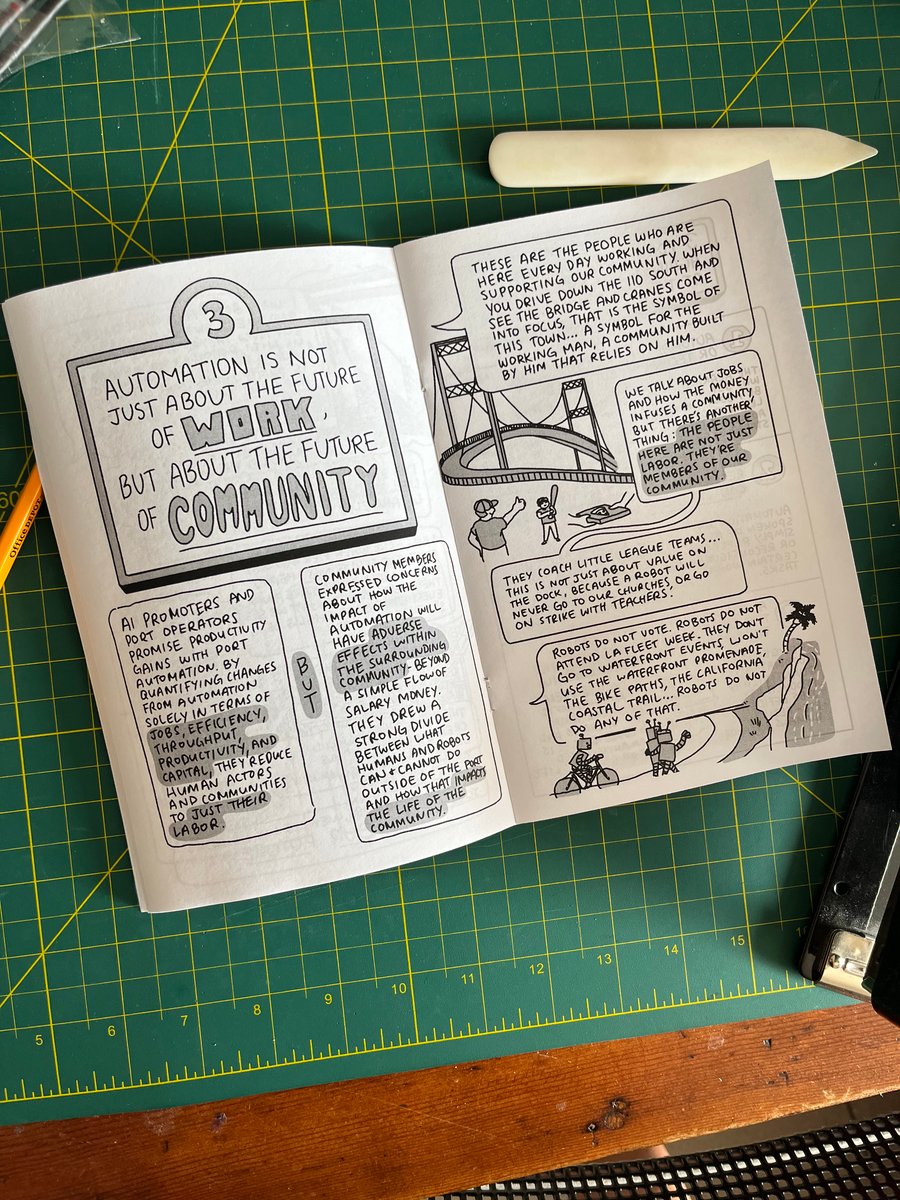 3
AUTOMATION IS NOT
JUST ABOUT THE FUTURE
OF WORK,
BUT ABOUT THE FUTURE
OF COMMUNITY
AI PROMOTERS AND
PORT OPERATORS
PROMISE PRODUCTIVITY
GAINS WITH PORT
AUTOMATION. BY
QUANTIFYING CHANGES
FROM AUTOMATION
SOLELY IN TERMS OF
JOBS, EFFICIENCY,
THROUGHPUT,
PRODUCTIVITY, AND
CAPITAL, THEY REDUCE
HUMAN ACTORS
AND COMMUNITIES
TO JUST THEIR
LABOR.
BUT
COMMUNITY MEMBERS
EXPRESSED CONCERNS
ABOUT HOW THE
IMPACT OF
AUTOMATION WILL
HAVE ADVERSE
EFFECTS WITHIN
THE SURROUNDING
COMMUNITY- BEYOND
A SIMPLE FLOW OF
SALARY MONEY.
THEY DREW A
STRONG DIVIDE
BETWEEN WHAT
HUMANS AND ROBOTS
CAN & CANNOT DO
OUTSIDE OF THE PORT
AND HOW THAT IMPACTS
THE LIFE OF THE
COMMUNITY.
THESE ARE THE PEOPLE WHO ARE
HERE EVERY DAY WORKING AND
SUPPORTING OUR COMMUNITY. WHEN
YOU DRIVE DOWN THE 110 SOUTH AND
SEE THE BRIDGE AND CRANES COME
INTO FOCUS, THAT IS THE SYMBOL OF
THIS TOWN... A SYMBOL FOR THE
WORKING MAN, A COMMUNITY BUILT
BY HIM THAT RELIES ON HIM.
WE TALK ABOUT JOBS
AND HOW THE MONEY
INFUSES A COMMUNITY,
BUT THERE'S ANOTHER
THING: THE PEOPLE
HERE ARE NOT JUST
LABOR. THEY'RE
MEMBERS OF OUR
COMMUNITY.
THEY COACH LITTLE LEAGUE TEAMS...
THIS IS NOT JUST ABOUT VALUE ON
THE DOCK, BECAUSE A ROBOT WILL
NEVER GO TO OUR CHURCHES, OR GO
ON STRIKE WITH TEACHERS.
ROBOTS DO NOT VOTE. ROBOTS DO NOT
ATTEND LA FLEET WEEK. THEY DON'T
GO TO WATERFRONT EVENTS, WON'T
USE THE WATERFRONT PROMENADE,
THE BIKE PATHS, THE CALIFORNIA
COASTAL TRAIL... ROBOTS DO NOT
DO ANY OF THAT.
Office DEPOT
5 6 7 8 9 10 11 12 13 14 15